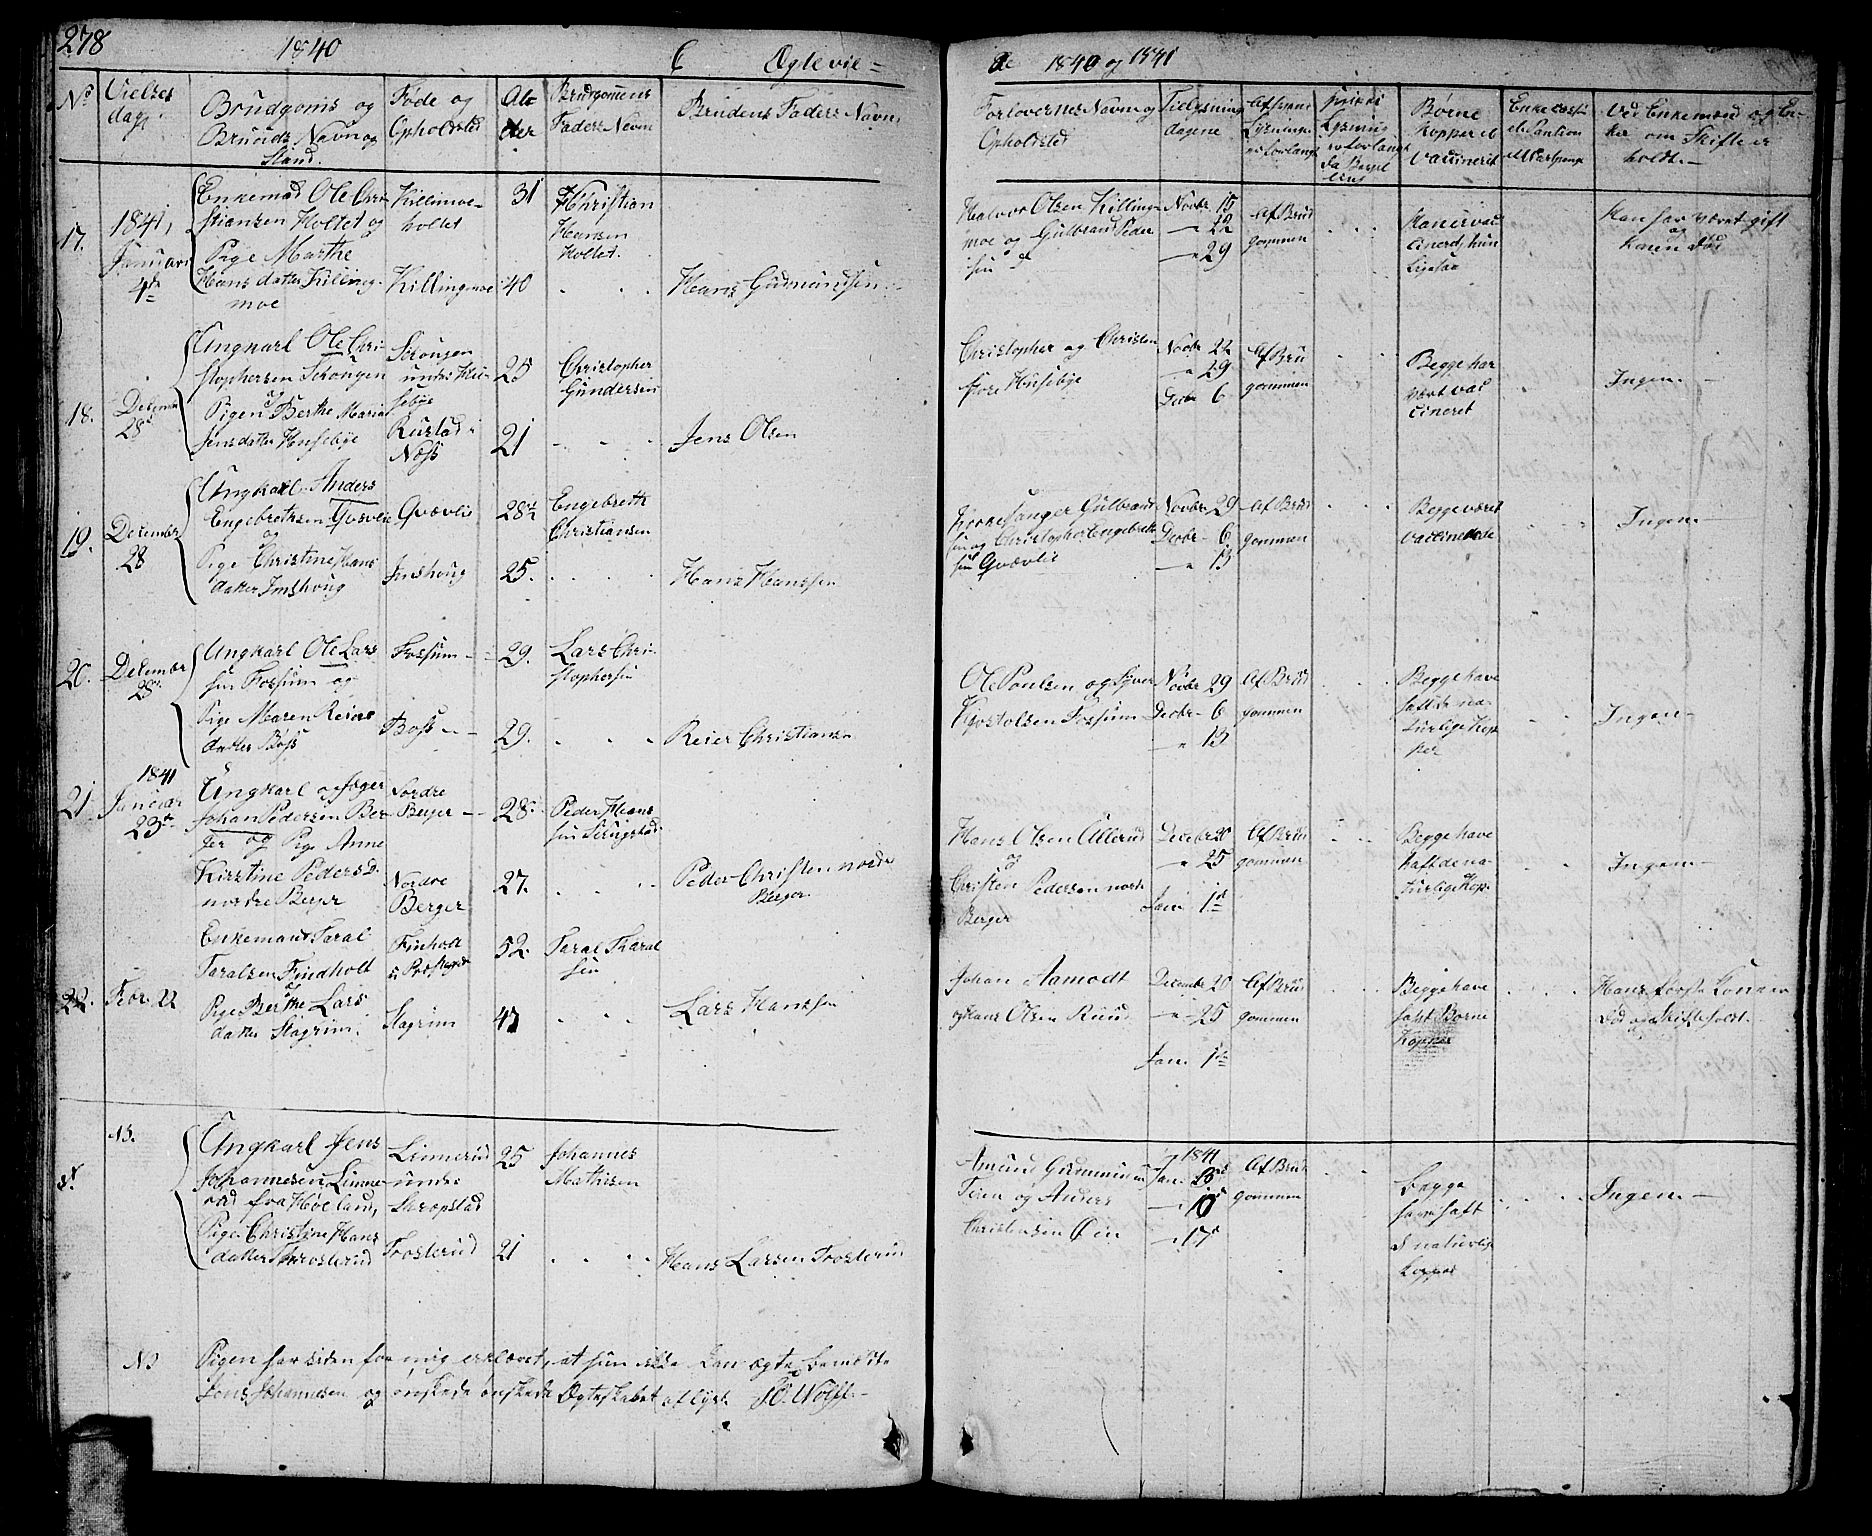 278
1840
C
Ægtevie=
de
1840 og 1841
No
Vielses
dag
Brudgoms og
Bruds Navn og
Stand.
Føde og
Opholdsted
Al-
der
Brudgomens
Faders Navn
Brudens Faders Navn
Forlovernes Navn og
Opholdsted
Tillysnings
dagene
Lysning
Børne
Kopper el
Vaccineret
Ved Enkemænd og En-
ker om Skifte er
holdt.-
17.
1841,
Januari
4de
Enkemad Ole Chri
stiansen Holtet og
Pige Marthe
Hans datter Killing
moe
Killimoe-
holtet
Killingmoe
31
40
Christian
Hansen
Holtet.
Hans Gudmundsen
Halvor Olsen Killing-
moe og Gulbrand Peder
sen
Novbr 15
22
29
Af Brud
gommen
Han er vac
cineret, hun
ligesaa
Han har været gift
og
konen død
18.
Decemb
28
Ungkarl Ole Chri
stophersen
og
Pigen Berthe Maria
Jensdatter Husebye
under Hu-
sebye
Rustad i
Næss
25
21
Christopher
Gundersen
Jens Olsen
Christopher og Christen
Husebye
Novbr 22
29
Decbr 6
Af Bru
gommen
Begge har
vært vac
cineret
Ingen -
19.
December
28
Ungkarl Anders
Engebrethsen Qvævlie
og
Pige Christine Hans
datter Imshoug
Qvævlie
Imshoug
28½
25.
Engebreth
Christiansen
Hans Hanssen
Kirkesanger Gulbrand
sen og Christopher Engebreth
sen Qvævlie
Novbr 29
Decbr 6
13
Af Brud
gommen
Begge været
vaccinerede
Ingen -
20.
Decemer
28
Ungkarl Ole Lars
sen Fossum og
Pige Maren Reiers
datter Bøss
Fossum -
Bøss -
29.
29.
Lars Chri-
stophersen
Reier Christians
Ole Poulsen og Syver
Kjostolsen Fossum
Novbr 29
Decbr 6
13
Af Brud
gommen
Begge have
haft de na-
turlige Kop
per
Ingen -
21.
1841
Januar
23de
Ungkarl og Jæger
Johan Pedersen Ber
ger og Pige Anne
Kirstine Peders D
nordre Berger
Nordre
Berger -
Nordre
Berger
28
27.
Peder Hans
sen
Peder Christen nordr
Berger
Hans Olsen Ullerud
og
Christen Pedersen nordr
Berger
Decebr 20
25
Jan 1st
Af Brud
gommen
Begge have
haft de na-
turlige Kop-
Ingen -
22.
Febr. 22
Enkemand Taral
Taralsen Findholt
og
Pige Berthe Lars
datter Hagrim.
Finholt
Hagrim
52.
Taral Tharal
sen
Lars Hanssen
Johan Aamodt
og Hans Olsen Ruud
Decembr 20
25
Jan. 1ste
Af Brud
gommen
Begge have
haft Børne
Kopper
Hans første Kone er
død og Skifte holdt.
NB.
Ungkarl Jens
Johannesen Linne-
rud fra Høland,
Pige Christine Hans
datter Throsterud
Linnerud
under
Trosterud
25
21
Johannes
Mathisen
Hans Larsen Trosterud
Amund Gummundsen
og Anders
Christensen
1841
Jan.
10
17
Af Brud
gommen
begge
have haft
d naturlige
kopper
Ingen -
NB
Pigen har siden for mig erklæret, at hun ikke kan ægte bemeldte
Jens Johannesen og ønskede ønskede Ægteskabet aflyst J.O. Wolff